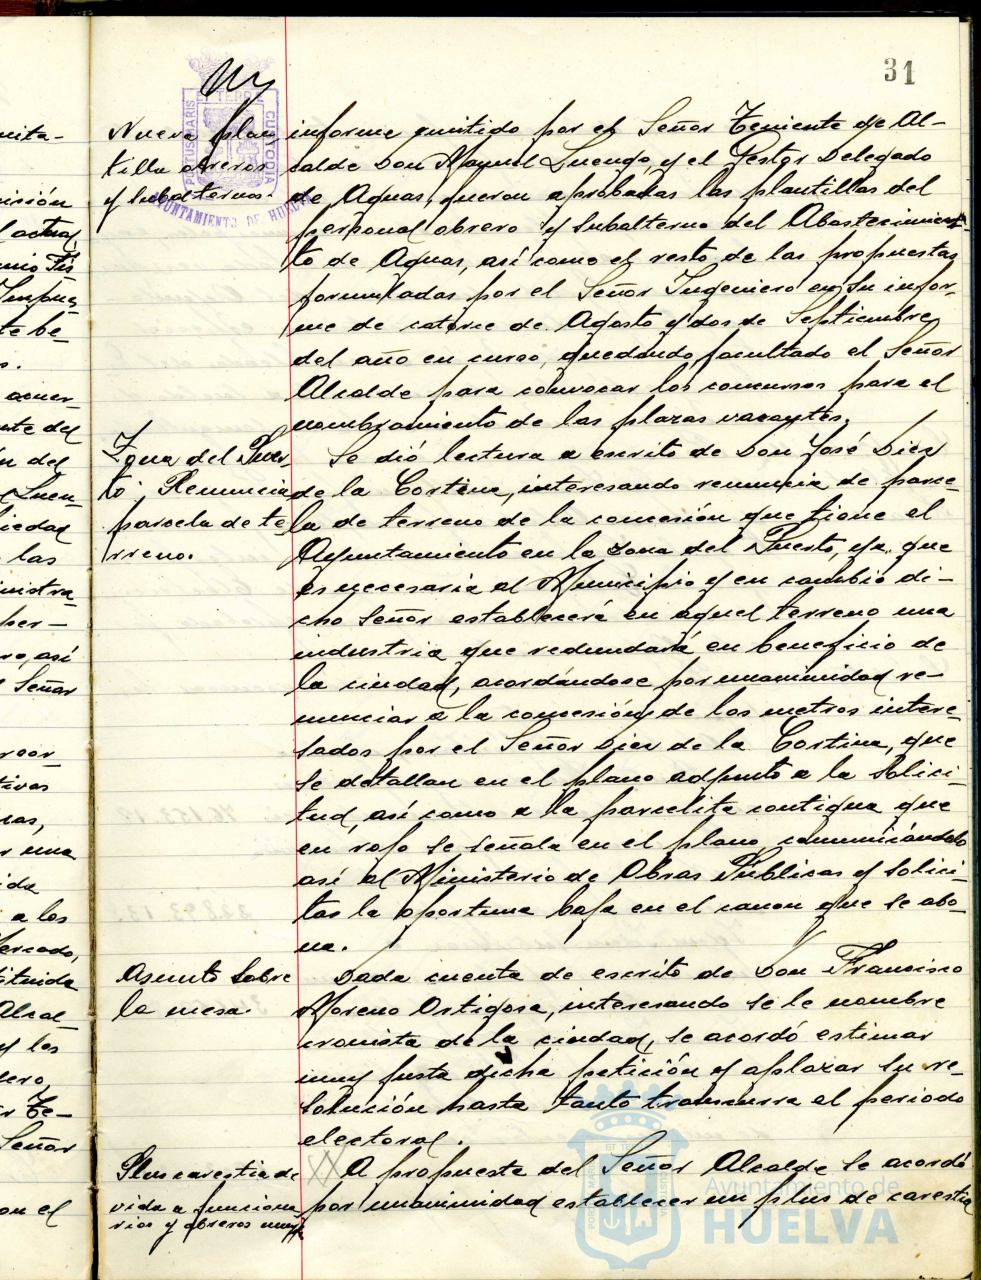 31
Nueva plan
tilla obreros
y subalternos.
informe emitido por el Señor Teniente de Al-
calde Don Manuel Luengo, y el Gestor Delegado
de Aguas, fueron aprobadas las plantillas del
personal obrero y subalterno del Abastecimien-
to de Aguas, así como el resto de las propuestas
formuladas por el Señor Ingeniero en su infor-
me de catorce de Agosto y dos de Septiembre,
del año en curso, quedando facultado el Señor
Alcalde para convocar los concursos para el
nombramiento de las plazas vacantes.
Zona del Puer-
to: Renuncia
parcela de te-
rreno.
Se dió lectura a escrito de Don José Diez
de la Cortina, interesando renuncia de parce-
la de terreno de la concesión que tiene el
Ayuntamiento en la zona del Puerto, ya que
es necesaria al Municipio y en cambio di-
cho Señor establecerá en aquel terreno una
industria que redundará en beneficio de
la ciudad, acordándose por unanimidad re-
nunciar a la concesión de los metros intere-
sados por el Señor Diez de la Cortina, que
se detallan en el plano adjunto a la solici-
tud, así como a la parcelita contigua que
en rojo se señala en el plano, comunicándolo
así al Ministerio de Obras Públicas y solici-
tar la oportuna baja en el canon que se abo-
na.
Asunto sobre
la mesa.
Dada cuenta de escrito de Don Francisco
Moreno Ortigosa, interesando se le nombre
cronista de la ciudad, se acordó estimar
muy justa dicha petición y aplazar su re-
solución hasta tanto transcurra el periodo
electoral.
Plus carestia de
vida a funciona
rios y obreros
A propuesta del Señor Alcalde se acordó
por unanimidad establecer un plus de carestia
PORTUS MARIS
CUSTODIA
AYUNTAMIENTO DE HUELVA
Ayuntamiento de
HUELVA
nita-
ición
l actual
te be-
acuer-
nte del
n del
Luen-
iedad
las
nistra-
per-
ro, así
Señor
tivos
ras,
r una
ida
a los
Mercado,
tituida
Alcal-
y los
r Te-
Señor
on el